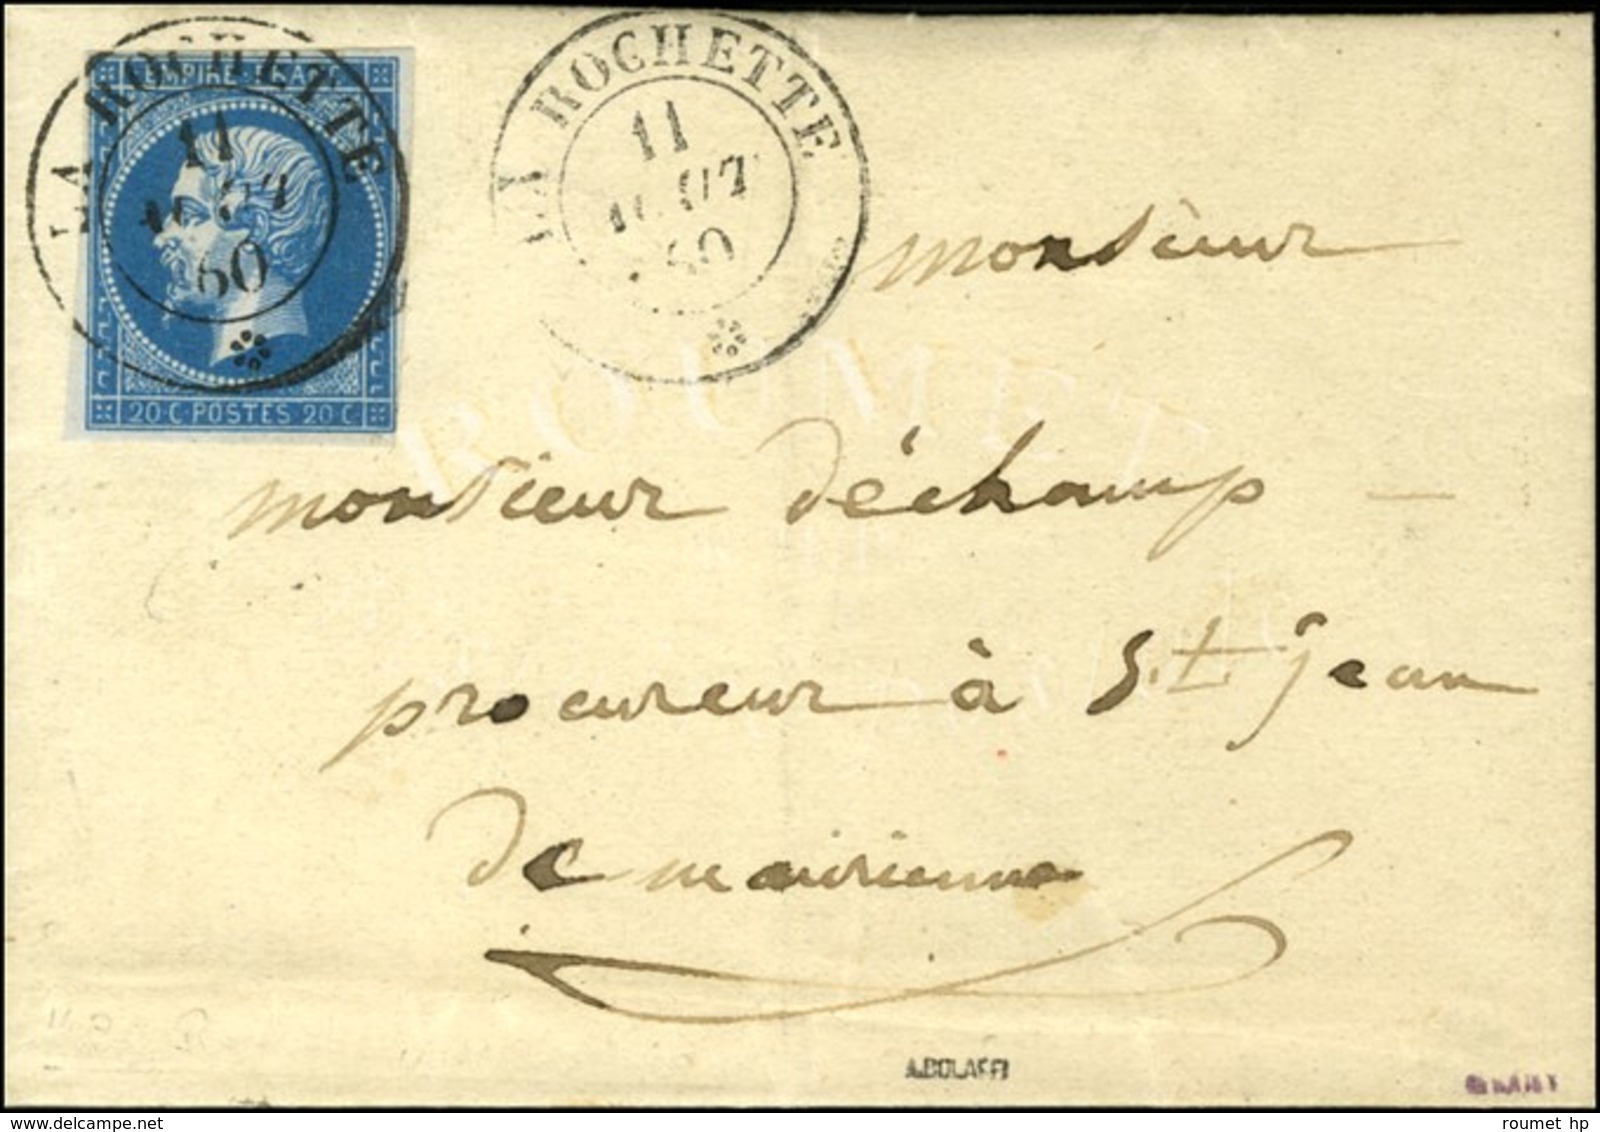 EMPIRE FRANC
LA ROCHETTE
11
AOUT
60
20 C. POSTES 20 C.
LA ROCHETTE
11
AOUT
60
monsieur
monsieur déchamp
procureur à St jean
de mairienne
ROUMET
A.BOLAFFI
roumet hp